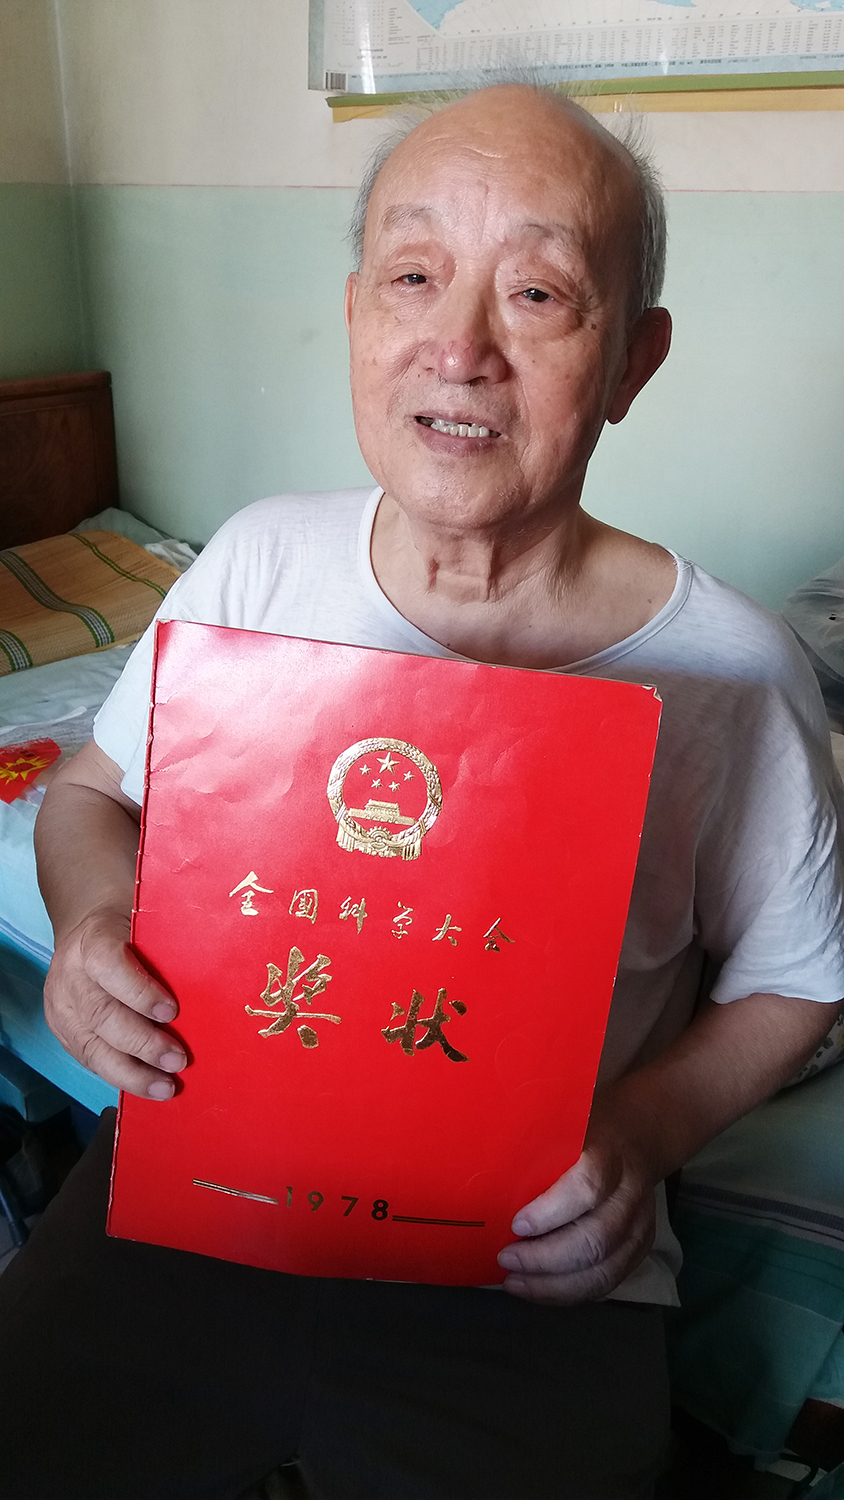 全國科学大会
奖状
1978